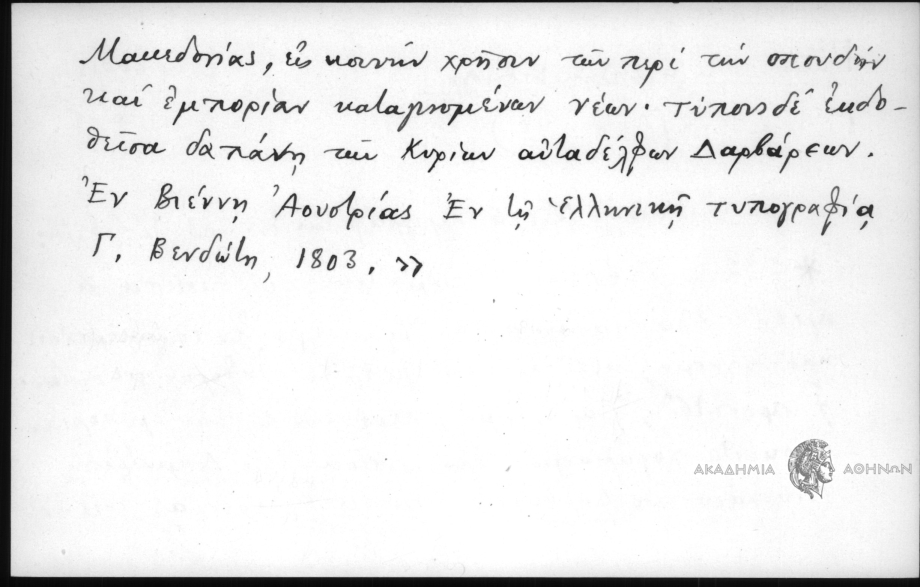 Μακεδονίας, εἰς κοινὴν χρῆσιν τῶν περὶ τὴν σπουδὴν
καὶ ἐμπορίαν καταγινομένων νέων· τύποις δὲ ἐκδο-
θεῖσα δαπάνῃ τῶν Κυρίων αὐταδέλφων Δαρβάρεων.
Ἐν Βιέννῃ Ἀουστρίας Ἐν τῇ Ἑλληνικῇ τυπογραφίᾳ
Γ. Βενδώτη, 1803. »
ΑΚΑΔΗΜΙΑ ΑΘΗΝΩΝ